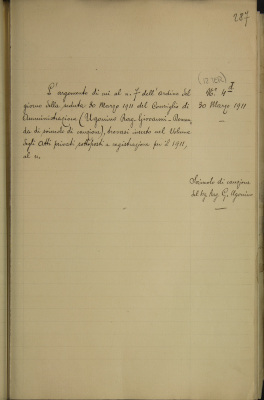 287
L'argomento di cui al n. 7 dell'ordine del
giorno della seduta 30 Marzo 1911 del Consiglio di
Amministrazione (Ugonino Rag. Giovanni - Doman,
da di svincolo di cauzione), trovasi inserto nel Volume
degli Atti privati sottoposti a registrazione pel 1911,
al n.
N.° 4
30 Marzo 1911
Svincolo di cauzione
del Sig. Rag. G. Ugonino